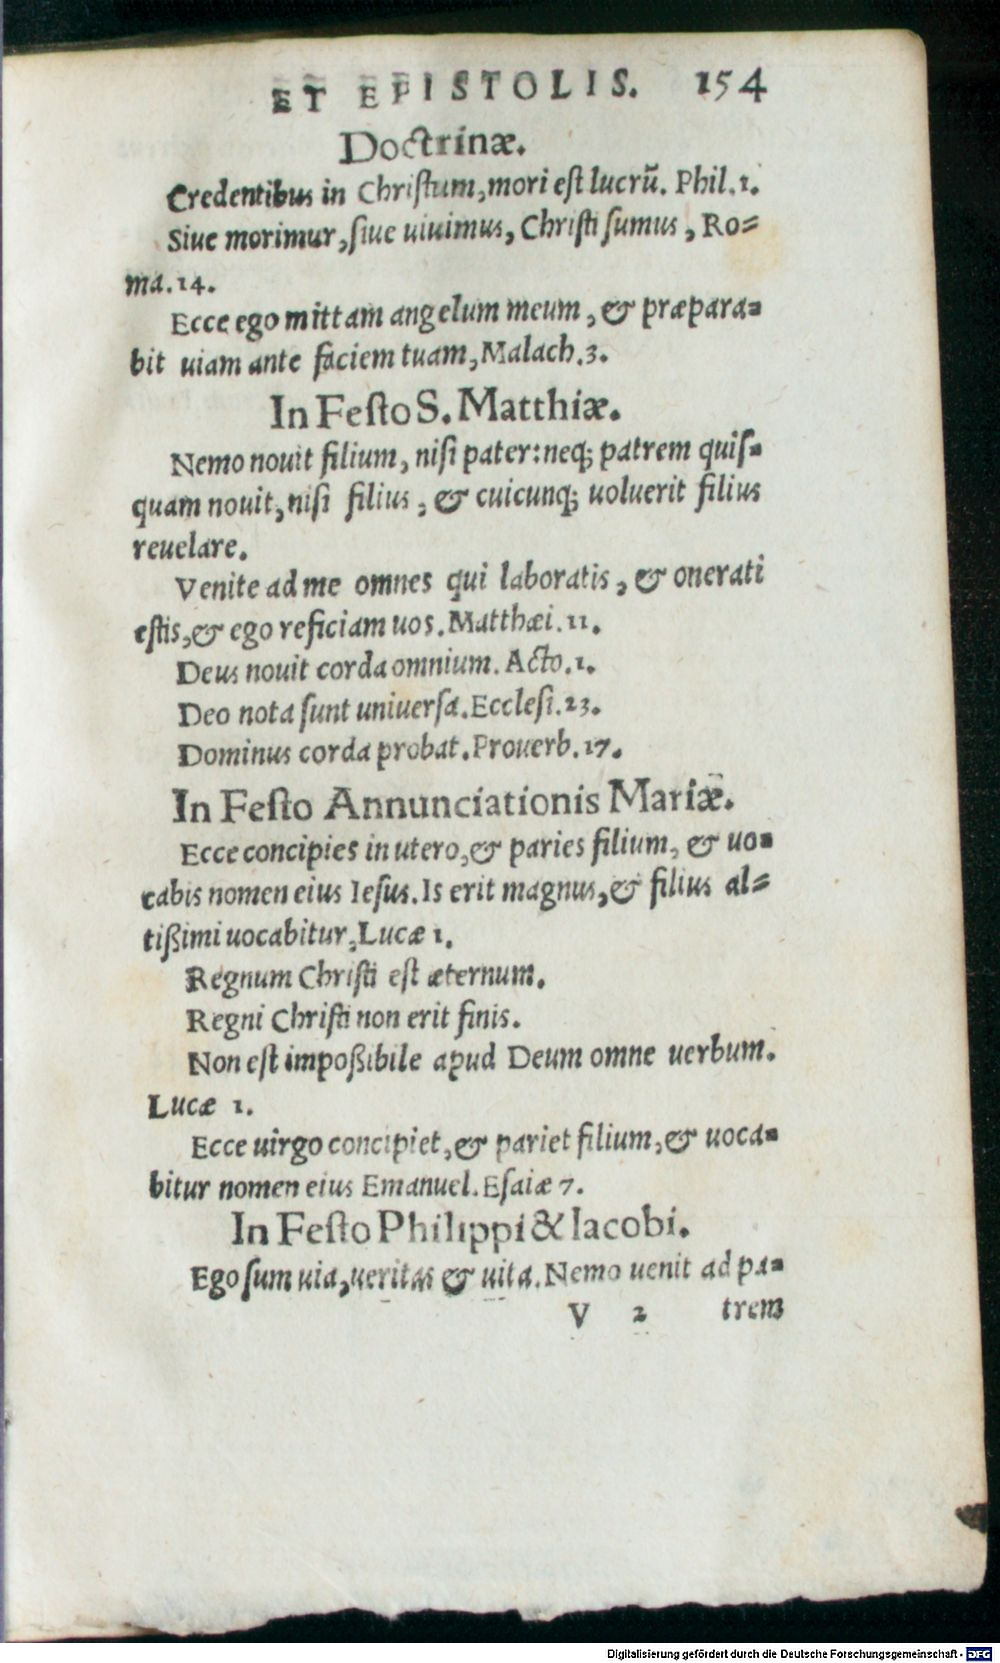 ET EPISTOLIS. 154
Doctrinæ.
Credentibus in Christum, mori est lucrũ. Phil. 1.
Siue morimur, siue uiuimus, Christi sumus, Ro=
ma. 14.
Ecce ego mittam angelum meum, & præpara=
bit uiam ante faciem tuam, Malach. 3.
In Festo S. Matthiæ.
Nemo nouit filium, nisi pater: neq; patrem quis=
quam nouit, nisi filius, & cuicunq; uoluerit filius
reuelare.
Venite ad me omnes qui laboratis, & onerati
estis, & ego reficiam uos. Matthæi. 11.
Deus nouit corda omnium. Acto. 1.
Deo nota sunt uniuersa. Ecclesi. 23.
Dominus corda probat. Prouerb. 17.
In Festo Annunciationis Mariæ.
Ecce concipies in utero, & paries filium, & uo=
cabis nomen eius Iesus. Is erit magnus, & filius al=
tißimi uocabitur, Lucæ 1.
Regnum Christi est æternum.
Regni Christi non erit finis.
Non est impoßibile apud Deum omne uerbum.
Lucæ 1.
Ecce uirgo concipiet, & pariet filium, & uoca=
bitur nomen eius Emanuel. Esaiæ 7.
In Festo Philippi & Iacobi.
Ego sum uia, ueritas & uita. Nemo uenit ad pa=
V 2 trem
Digitalisierung gefördert durch die Deutsche Forschungsgemeinschaft - DFG